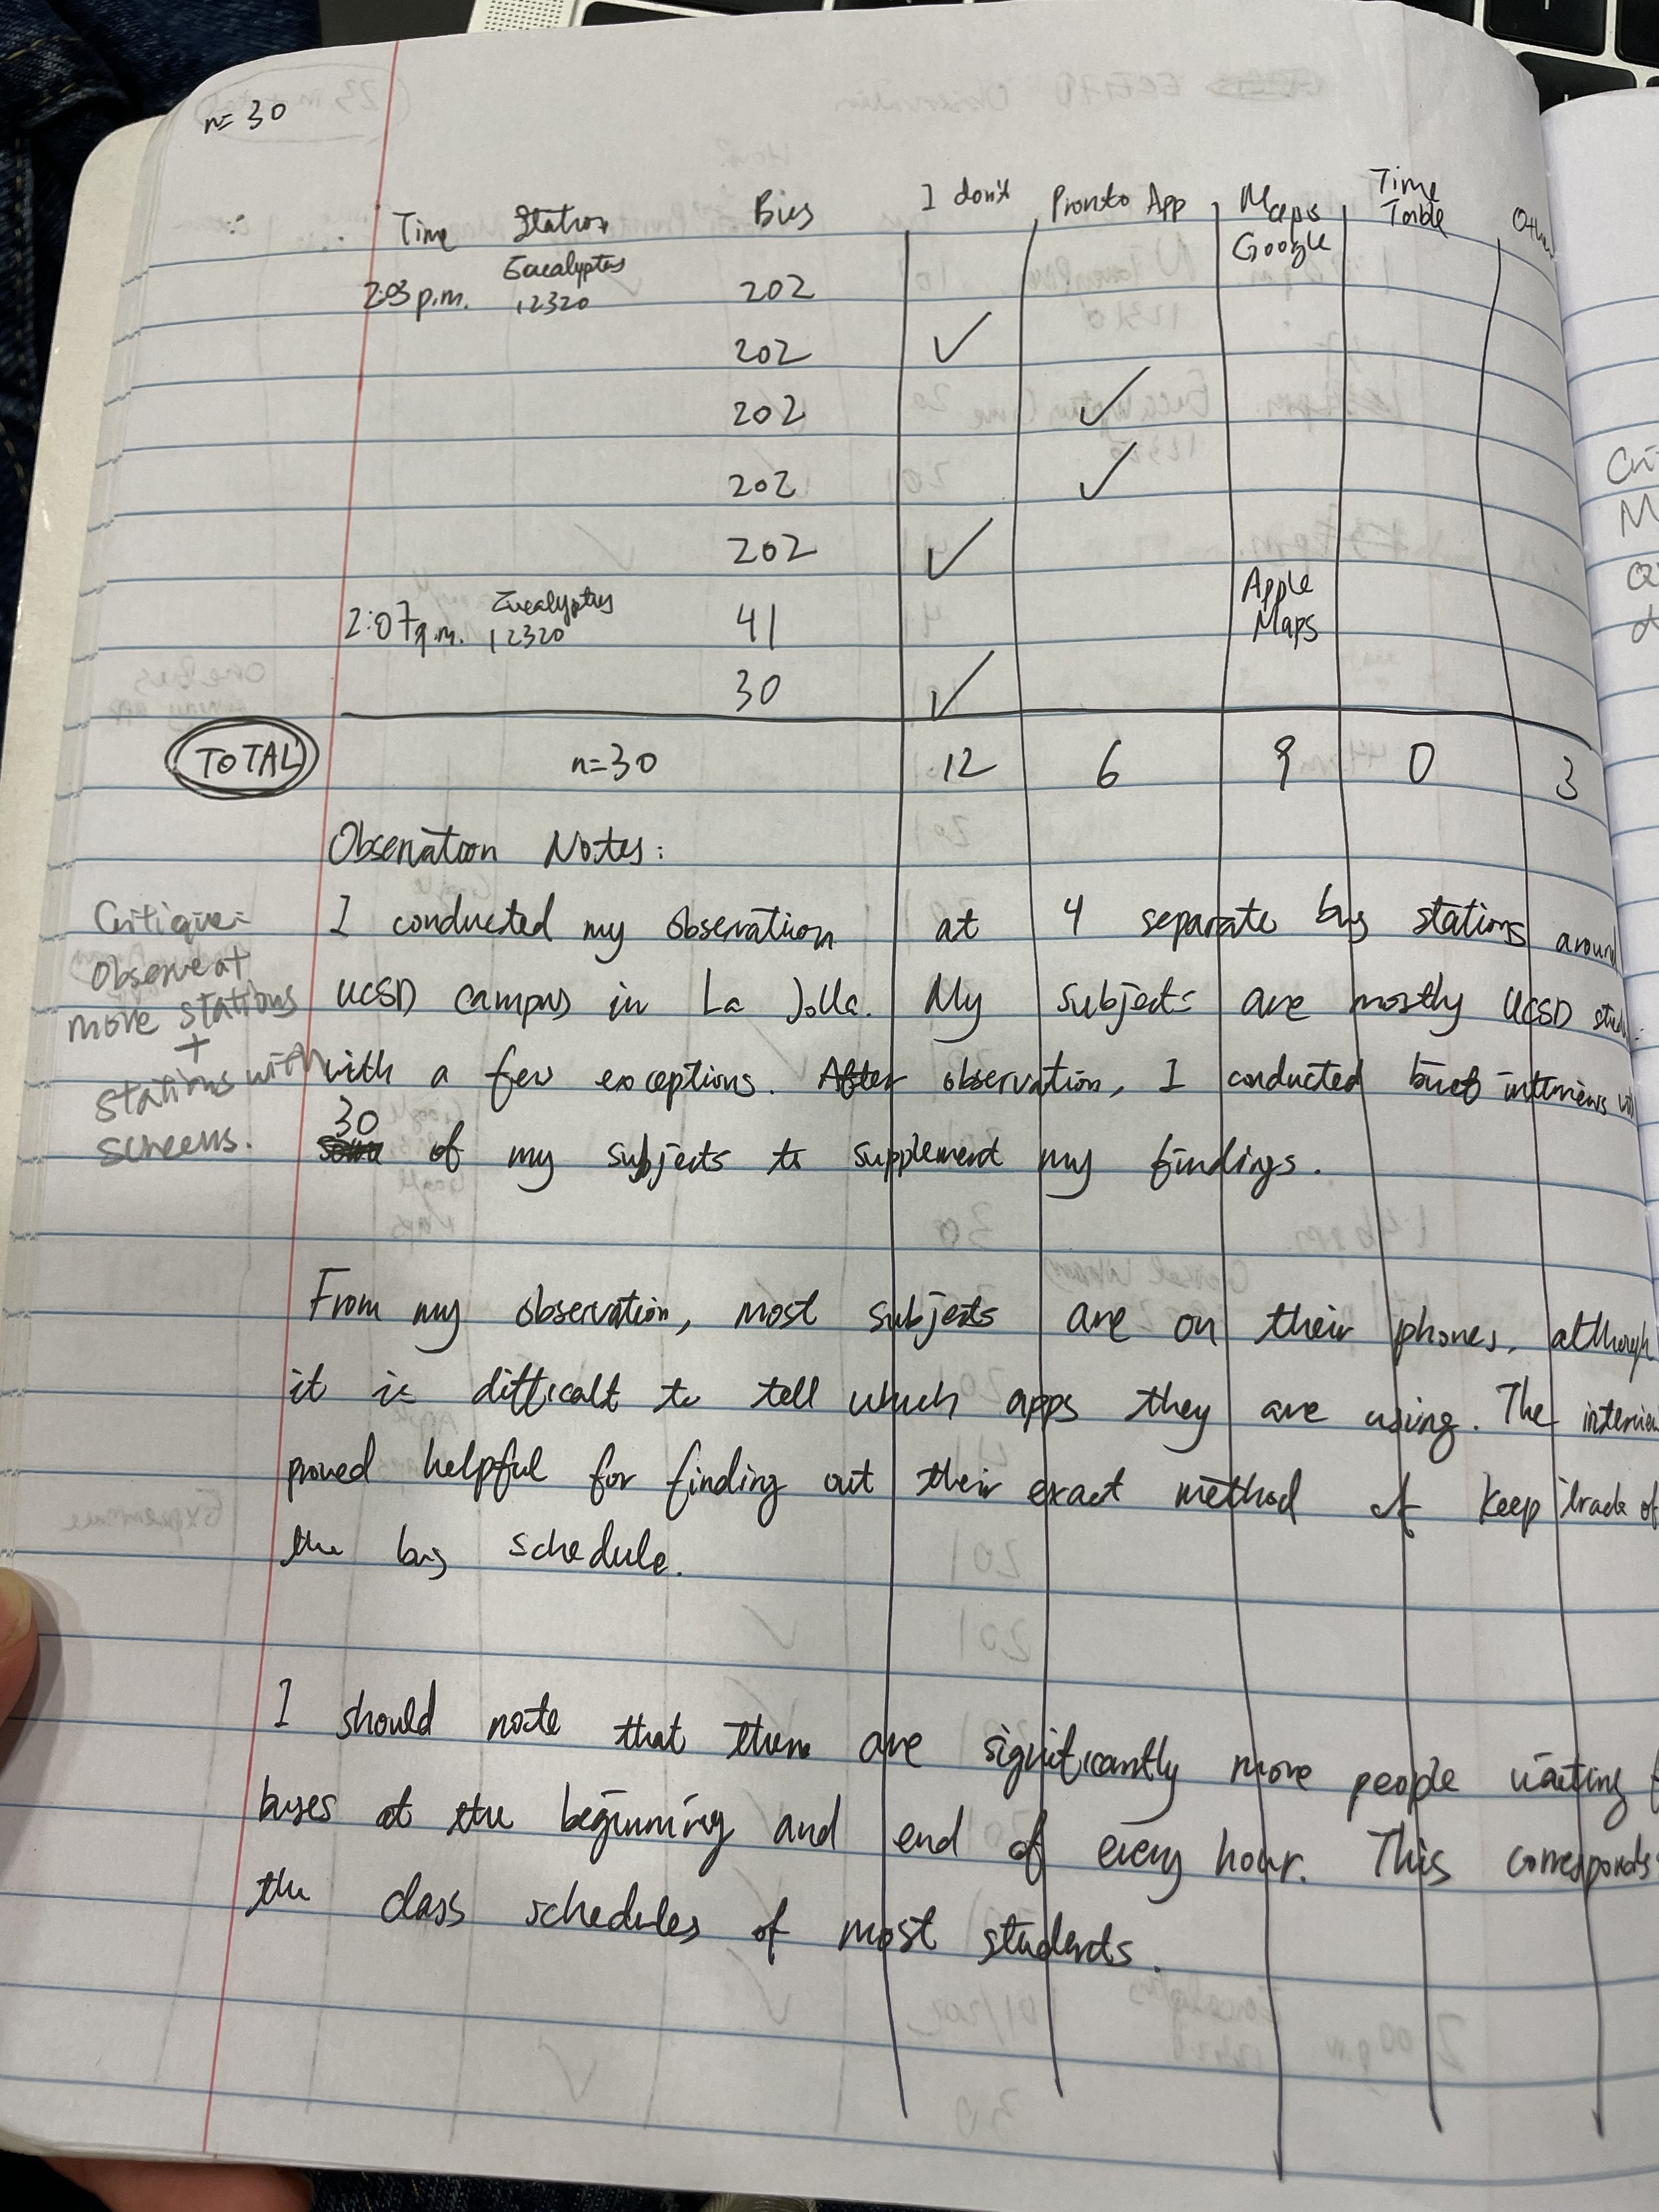 n=30
Time Station Bus I don't Pronto App Maps Time Table
2:03 p.m. Eucalyptus 12320 202 Google
202 ✓
202 ✓
202 ✓
202 ✓
2:07 p.m. Eucalyptus 12320 41 Apple Maps
30 ✓
TOTAL n=30 12 6 9 0 3
Observation Notes:
I conducted my observation at 4 separate bus stations around
UCSD campus in La Jolla. My subjects are mostly UCSD
with a few exceptions. After observation, I conducted brief interviews
30
of my subjects to supplement my findings.
Critique:
Observe at
more stations
+
stations with
screens.
From my observation, most subjects are on their phones, although
it is difficult to tell which apps they are using. The
proved helpful for finding out their exact method of keep track of
the bus schedule.
I should note that there are significantly more people waiting
buses at the beginning and end of every hour. This corresponds
the class schedules of most students.